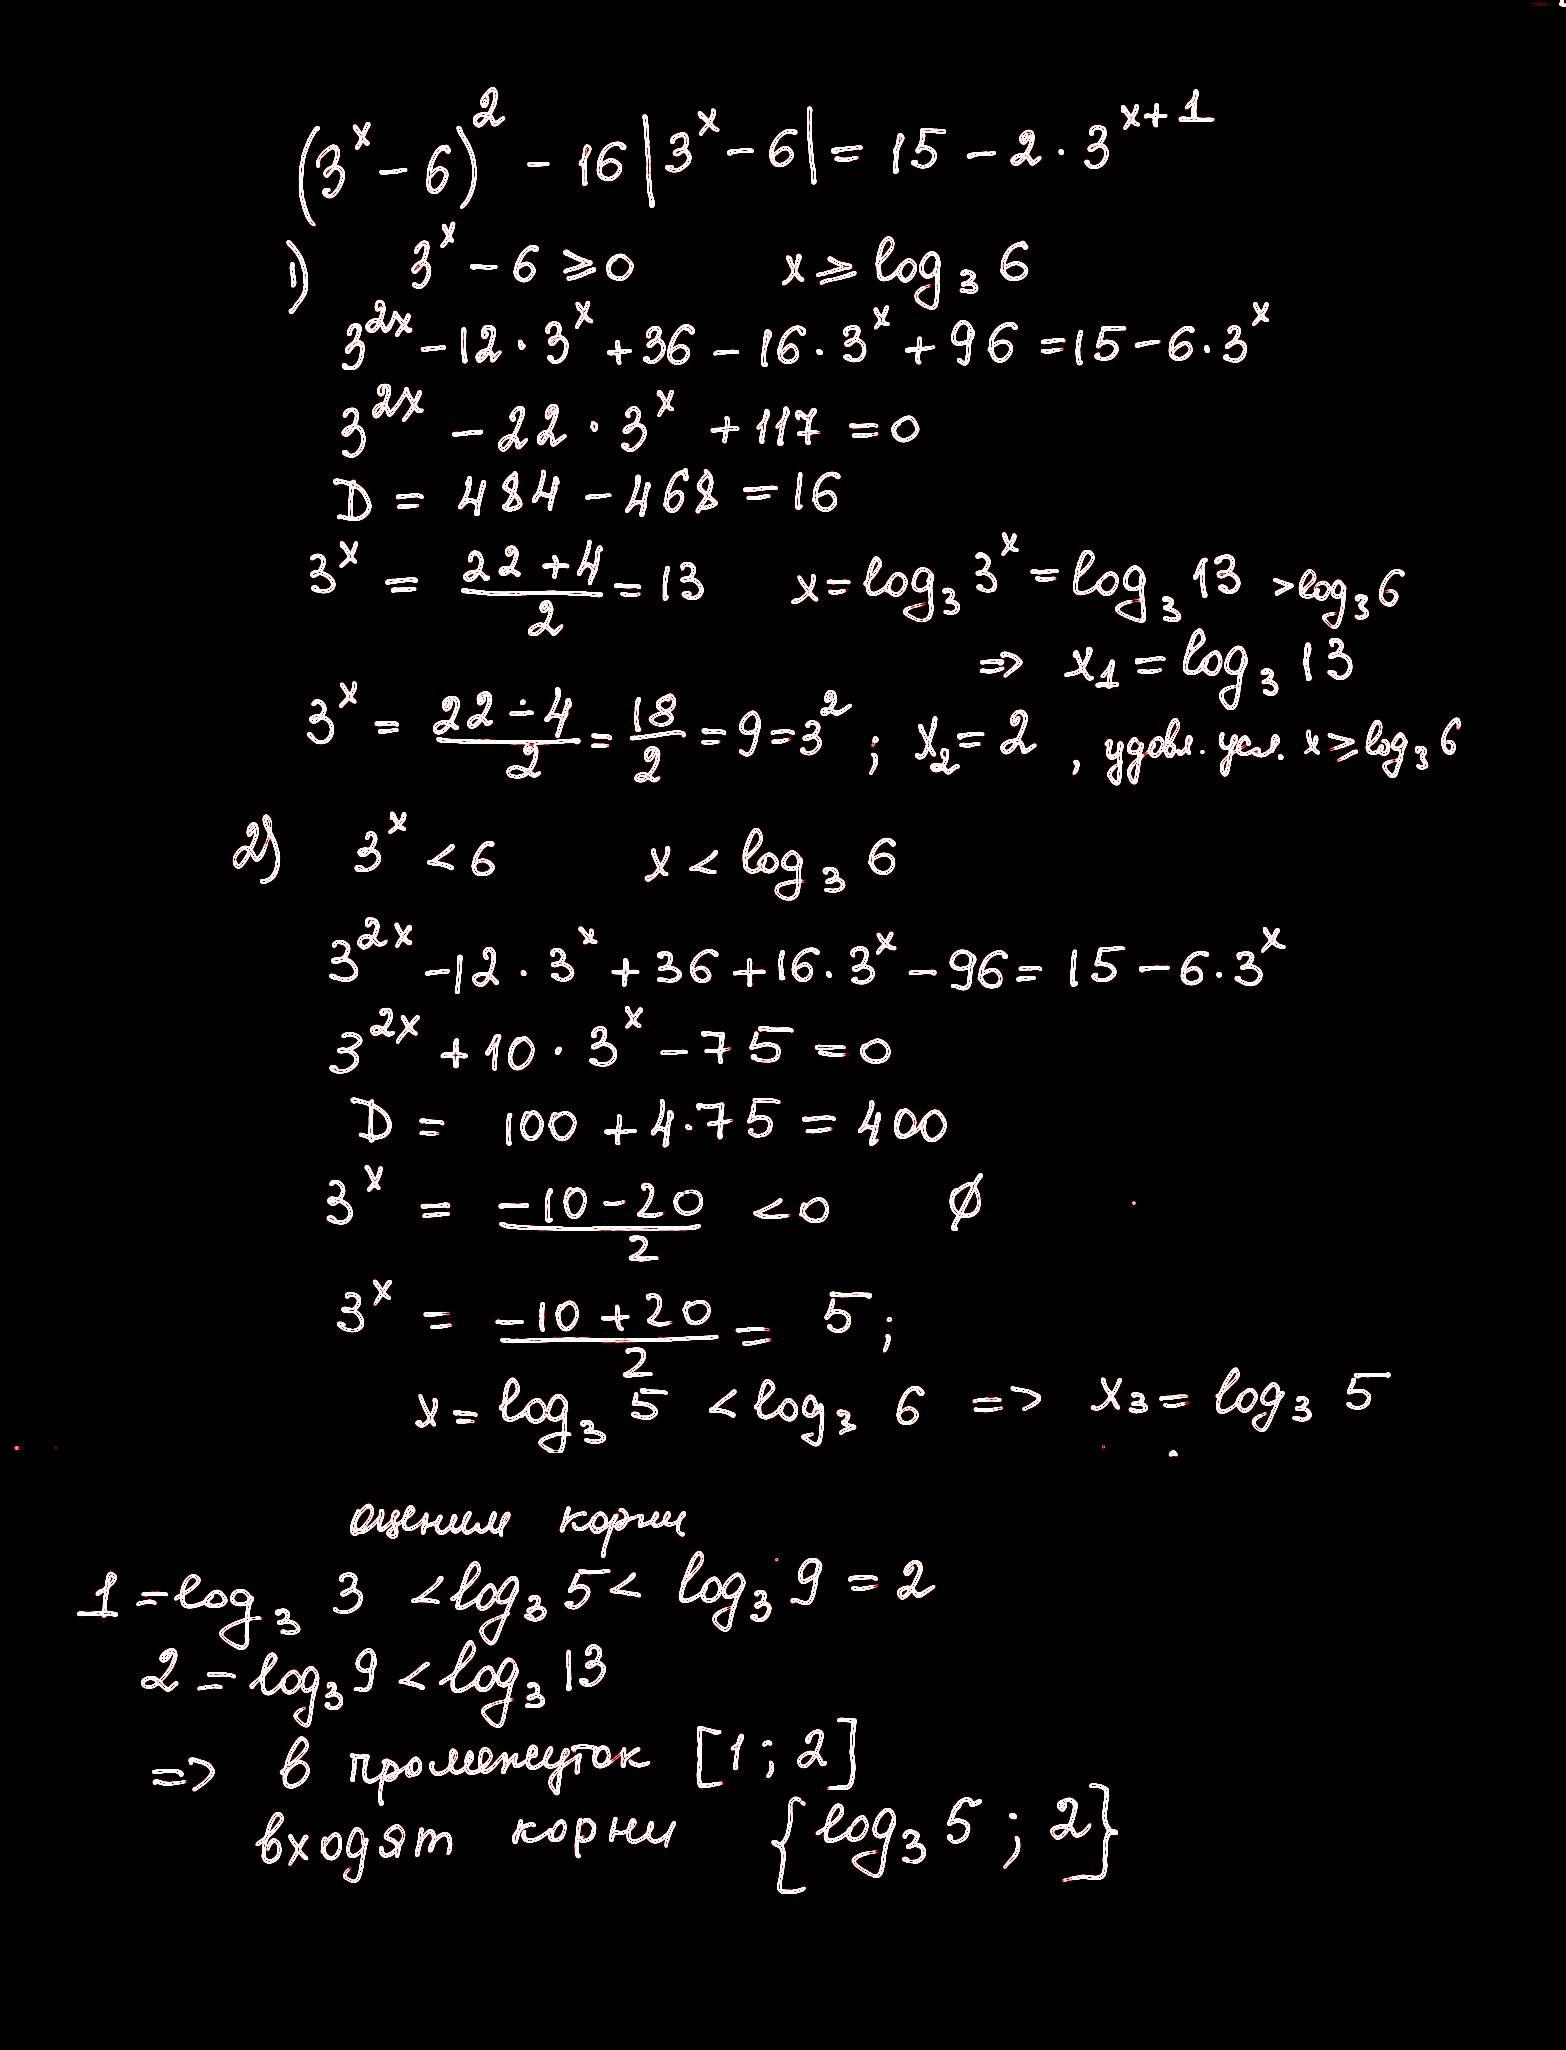 (3^x - 6)^2 - 16|3^x - 6| = 15 - 2 · 3^{x+1}
1) 3^x - 6 ≥ 0 x ≥ log_3 6
3^{2x} - 12 · 3^x + 36 - 16 · 3^x + 96 = 15 - 6 · 3^x
3^{2x} - 22 · 3^x + 117 = 0
D = 484 - 468 = 16
3^x = (22 + 4)/2 = 13 x = log_3 3^x = log_3 13 > log_3 6
⇒ x_1 = log_3 13
3^x = (22 - 4)/2 = 18/2 = 9 = 3^2 ; x_2 = 2 , удовл. усл. x ≥ log_3 6
2) 3^x < 6 x < log_3 6
3^{2x} - 12 · 3^x + 36 + 16 · 3^x - 96 = 15 - 6 · 3^x
3^{2x} + 10 · 3^x - 75 = 0
D = 100 + 4 · 75 = 400
3^x = (-10 - 20)/2 < 0 ∅
3^x = (-10 + 20)/2 = 5 ;
x = log_3 5 < log_3 6 ⇒ x_3 = log_3 5
оценим корни
1 = log_3 3 < log_3 5 < log_3 9 = 2
2 = log_3 9 < log_3 13
⇒ в промежуток [1 ; 2]
входят корни {log_3 5 ; 2}